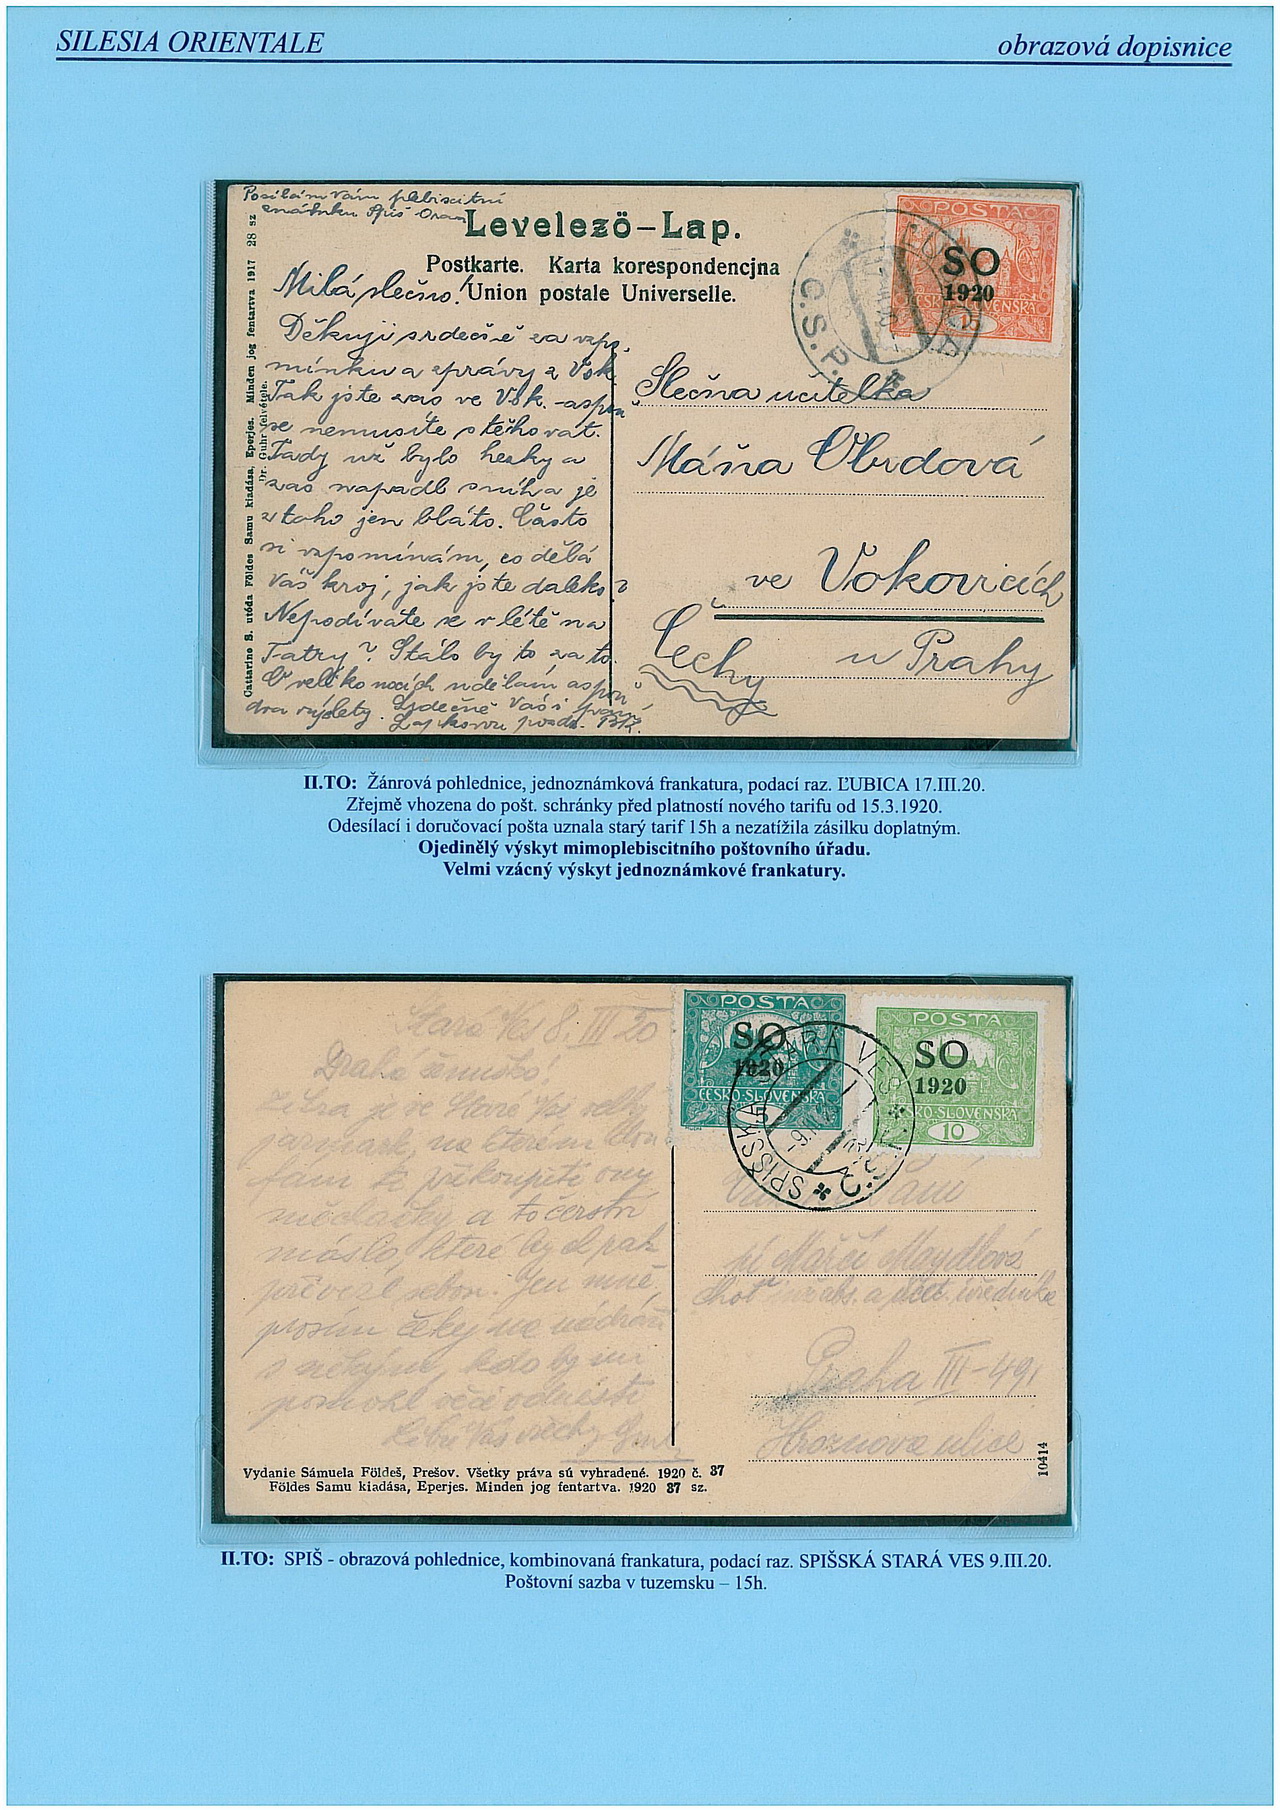 SILESIA ORIENTALE
obrazová dopisnice
Posílám Vám plebiscitní
známku Spiš Orava
Levelező-Lap.
Postkarte. Karta korespondencjna
Union postale Universelle.
Cattarino S. utóda Földes Samu kiadása, Eperjes. Minden jog fentartva 1917 28 sz
Dr. Guhr felvétele.
Milá slečno!
Děkuji srdečně za vzpo-
mínku a zprávy z Vok.
Tak jste zas ve Vok. - aspoň
se nemusíte stěhovat.
Tady už bylo hezky a
zas napadl sníh a je
z toho jen bláto. Často
si vzpomínám, co dělá
Váš kroj, jak jste daleko?
Nepodíváte se v létě na
Tatry? Stálo by to za to.
O velikonocích udělám aspoň
dva výlety. Srdečně Vás i
POSTA
SO
1920
ČESKO-SLOVENSKÁ
Č.S.P.
Slečna učitelka
Máňa Obrdová
ve Vokovicích
u Prahy
Čechy
II.TO: Žánrová pohlednice, jednoznámková frankatura, podací raz. ĽUBICA 17.III.20.
Zřejmě vhozena do pošt. schránky před platností nového tarifu od 15.3.1920.
Odesílací i doručovací pošta uznala starý tarif 15h a nezatížila zásilku doplatným.
Ojedinělý výskyt mimoplebiscitního poštovního úřadu.
Velmi vzácný výskyt jednoznámkové frankatury.
Stará Ves 8. III 20
Drahá
Zítra je ve Staré Vsi velký
jarmark, na kterém
a čerstvé
máslo, které bych pak
přivezl sebou. Jen mně,
prosím čekej na nádraží
s někým, kdo by mi
pomohl věci odnésti
Líbá Vás všechny
POSTA
SO
1920
ČESKO-SLOVENSKÁ
5
POSTA
SO
1920
KO-SLOVENSKÁ
10
SPIŠSKÁ STARÁ VES
-9.III.20
pí Máří Maydlová
choť
Praha III-491
Hroznova ulice
10414
Vydanie Sámuela Földeš, Prešov. Všetky práva sú vyhradené. 1920 č. 37
Földes Samu kiadása, Eperjes. Minden jog fentartva. 1920 37 sz.
II.TO: SPIŠ - obrazová pohlednice, kombinovaná frankatura, podací raz. SPIŠSKÁ STARÁ VES 9.III.20.
Poštovní sazba v tuzemsku – 15h.